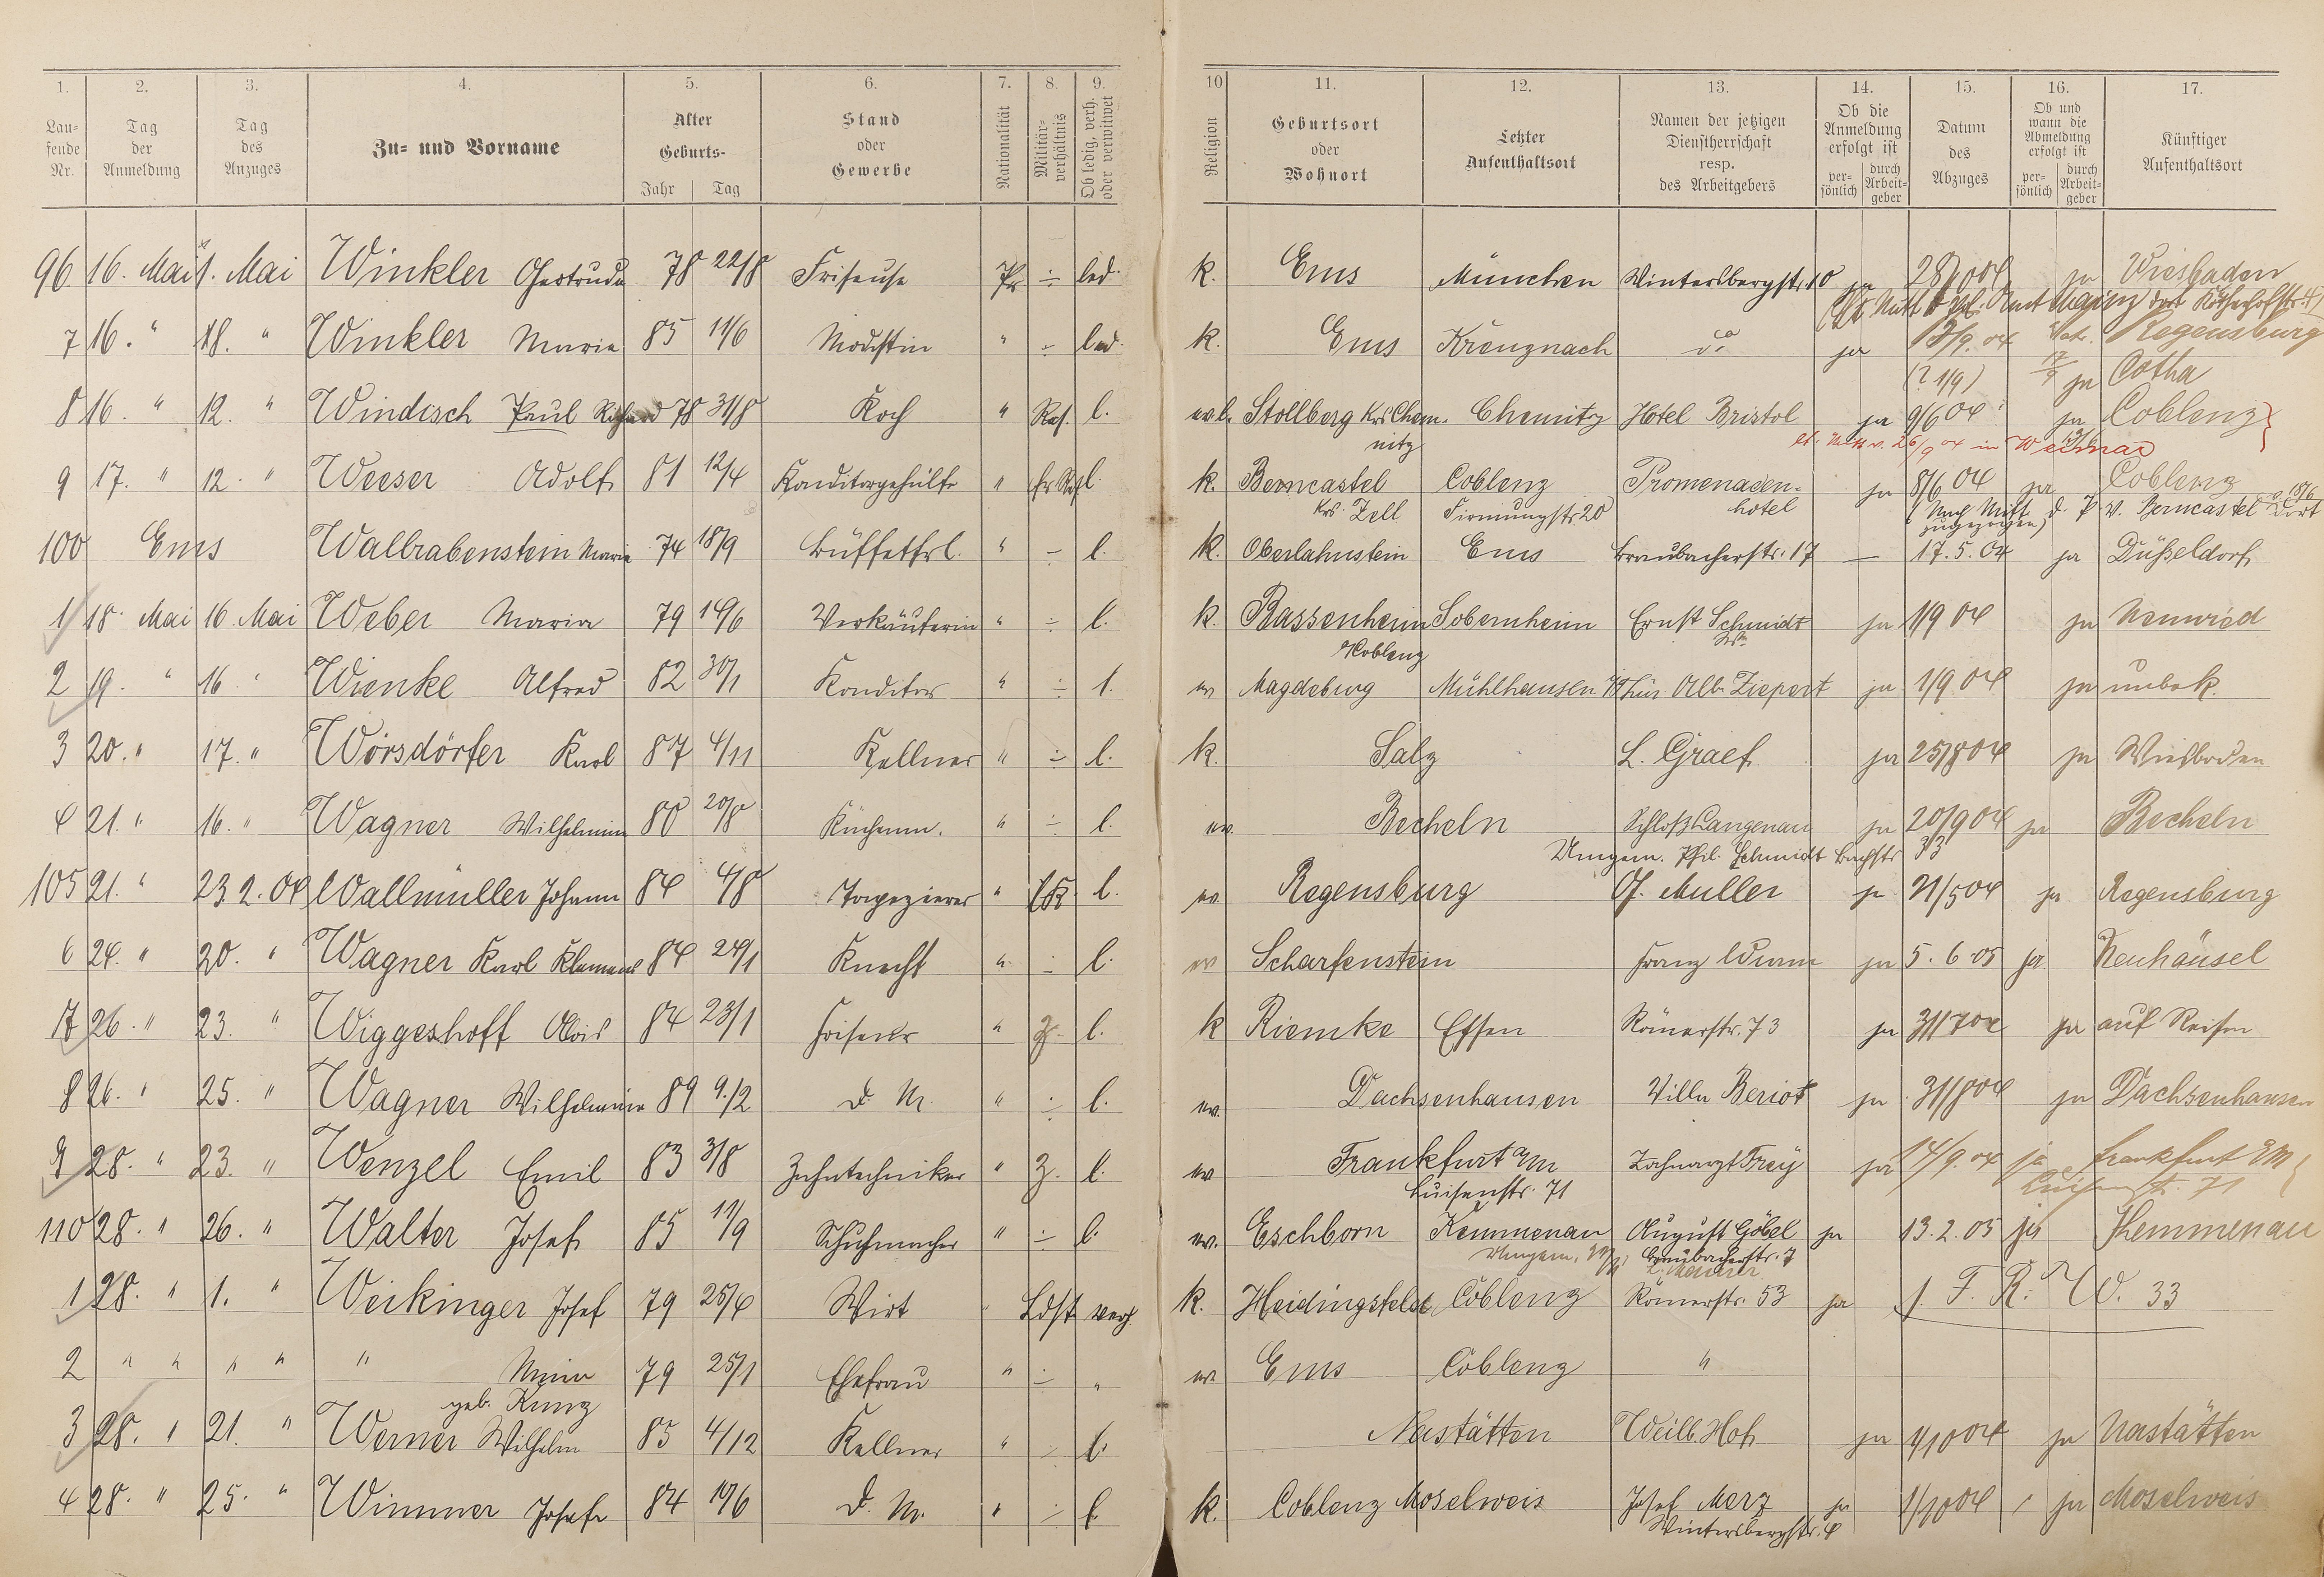 1. 2. 3. 4. 5. 6. 7. 8. 9. 10 11. 12. 13. 14. 15. 16. 17.
Lau-
fende
Nr.
Tag
der
Anmeldung
Tag
des
Anzuges
Zu- und Vorname
Alter
Geburts-
Jahr Tag
Stand
oder
Gewerbe
Nationalität
Militär-
verhältnis
Ob ledig, verh.
oder verwitwet
Religion
Geburtsort
oder
Wohnort
Letzter
Aufenthaltsort
Namen der jetzigen
Dienstherrschaft
resp.
des Arbeitgebers
Ob die
Anmeldung
erfolgt ist
per-
sönlich
durch
Arbeit-
geber
Datum
des
Abzuges
Ob und
wann die
Abmeldung
erfolgt ist
per-
sönlich
durch
Arbeit-
geber
Künftiger
Aufenthaltsort
96. 16. Mai 1. Mai Winkler Gertrude 78 22/8 Friseuse Pr ÷ led. k. Ems München Wintersbergstr. 10 ja 28/10 04 ja Wiesbaden
7 16. " 18. " Winkler Maria 85 11/6 Modistin " ÷ led. k. Ems Kreuznach do ja 13/9. 04 Regensburg
(? 1/9) 17/9 ja Gotha
8 16. " 12. " Windisch Paul Richard 78 31/8 Koch " Res. l. ev. l. Stollberg Krs Chem- Chemnitz Hotel Bristol ja 9/6 04 ja Coblenz
nitz 26/9 04 in Weimar
9 17. " 12. " Weeser Adolf 81 12/4 Konditorgehülfe " l. k. Berncastel Coblenz Promenaden- ja 8/6 04 ja Coblenz
Krs. Zell Firmungstr 20 hotel (Nach Mitt. d. P. v. Berncastel v. 18/6 dort
zugezogen)
100 Ems Wallrabenstein Maria 74 18/9 Büffetfrl. " – l. k. Oberlahnstein Ems Braubacherstr. 17 — 17. 5. 04 ja Düsseldorf
1 18. Mai 16. Mai Weber Maria 79 14/6 Verkäuferin " ÷ l. k. Bassenheim Sobernheim Ernst Schmidt ja 1/9 04 ja Neuwied
Koblenz
2 19. " 16. " Wienke Alfred 82 30/1 Konditor " ÷ l. ev Magdeburg Mühlhausen i/Thür. Alb. Ziepert ja 1/9 04 ja unbek.
3 20. " 17. " Wörsdörfer Karl 87 4/11 Kellner " ÷ l. k. Salz L. Graef ja 25/8 04 ja Wiesbaden
4 21. " 16. " Wagner Wilhelmine 80 20/8 Küchenm. " ÷ l. ev. Becheln Schloß Langenau ja 20/9 04 ja Becheln
Umgem. Phil. Schmidt Bachstr 33
105 21. " 23 2. 04 Wallmüller Johann 84 4/8 Tapezierer " l. ev. Regensburg G. Müller ja 21/5 04 ja Regensburg
6 24. " 20. " Wagner Karl Klemens 84 24/1 Knecht " ÷ l. ev Scharfenstein Franz Wurm ja 5. 6 05 ja Neuhäusel
7 26. " 23. " Wiggeshoff Alois 84 23/1 Friseur " Z. l. k Riemke Essen Römerstr. 73 ja 31/7 04 ja auf Reisen
8 26. " 25. " Wagner Wilhelmine 89 9./2 D. M. " ÷ l. ev. Dachsenhausen Villa Beriot ja 31/8 04 ja Dachsenhausen
9 28. " 23. " Wenzel Emil 83 3/8 Zahntechniker " Z. l. ev Frankfurt a/m Zahnarzt Frey ja 14/9. 04 ja Frankfurt a/M
Luisenstr. 71 Luisenstr. 71
110 28. " 26. " Walter Josef 85 11/9 Schuhmacher " ÷ l. ev. Eschborn Kemmenau August Göbel ja 13. 2. 05 ja Kemmenau
Umgem. Braubacherstr. 7
1 28. " 1. " Weikinger Josef 79 25/4 Wirt " Ldst verh. k. Heidingsfeld Coblenz Römerstr. 53 ja s. F. R. W. 33
2 " " " " " Minna 79 25/1 Ehefrau " ÷ " ev. Ems Coblenz "
geb. Kunz
3 28. " 21. " Werner Wilhelm 85 4/12 Kellner " ÷ l. Nastätten Weilb. Hof ja 1/10 04 ja Nastätten
4 28. " 25. " Wimmer Josefa 84 19/6 D. M. " ÷ l. k. Coblenz Moselweis Josef Merz ja 1/10 04 ja Moselweis
Wintersbergstr. 4